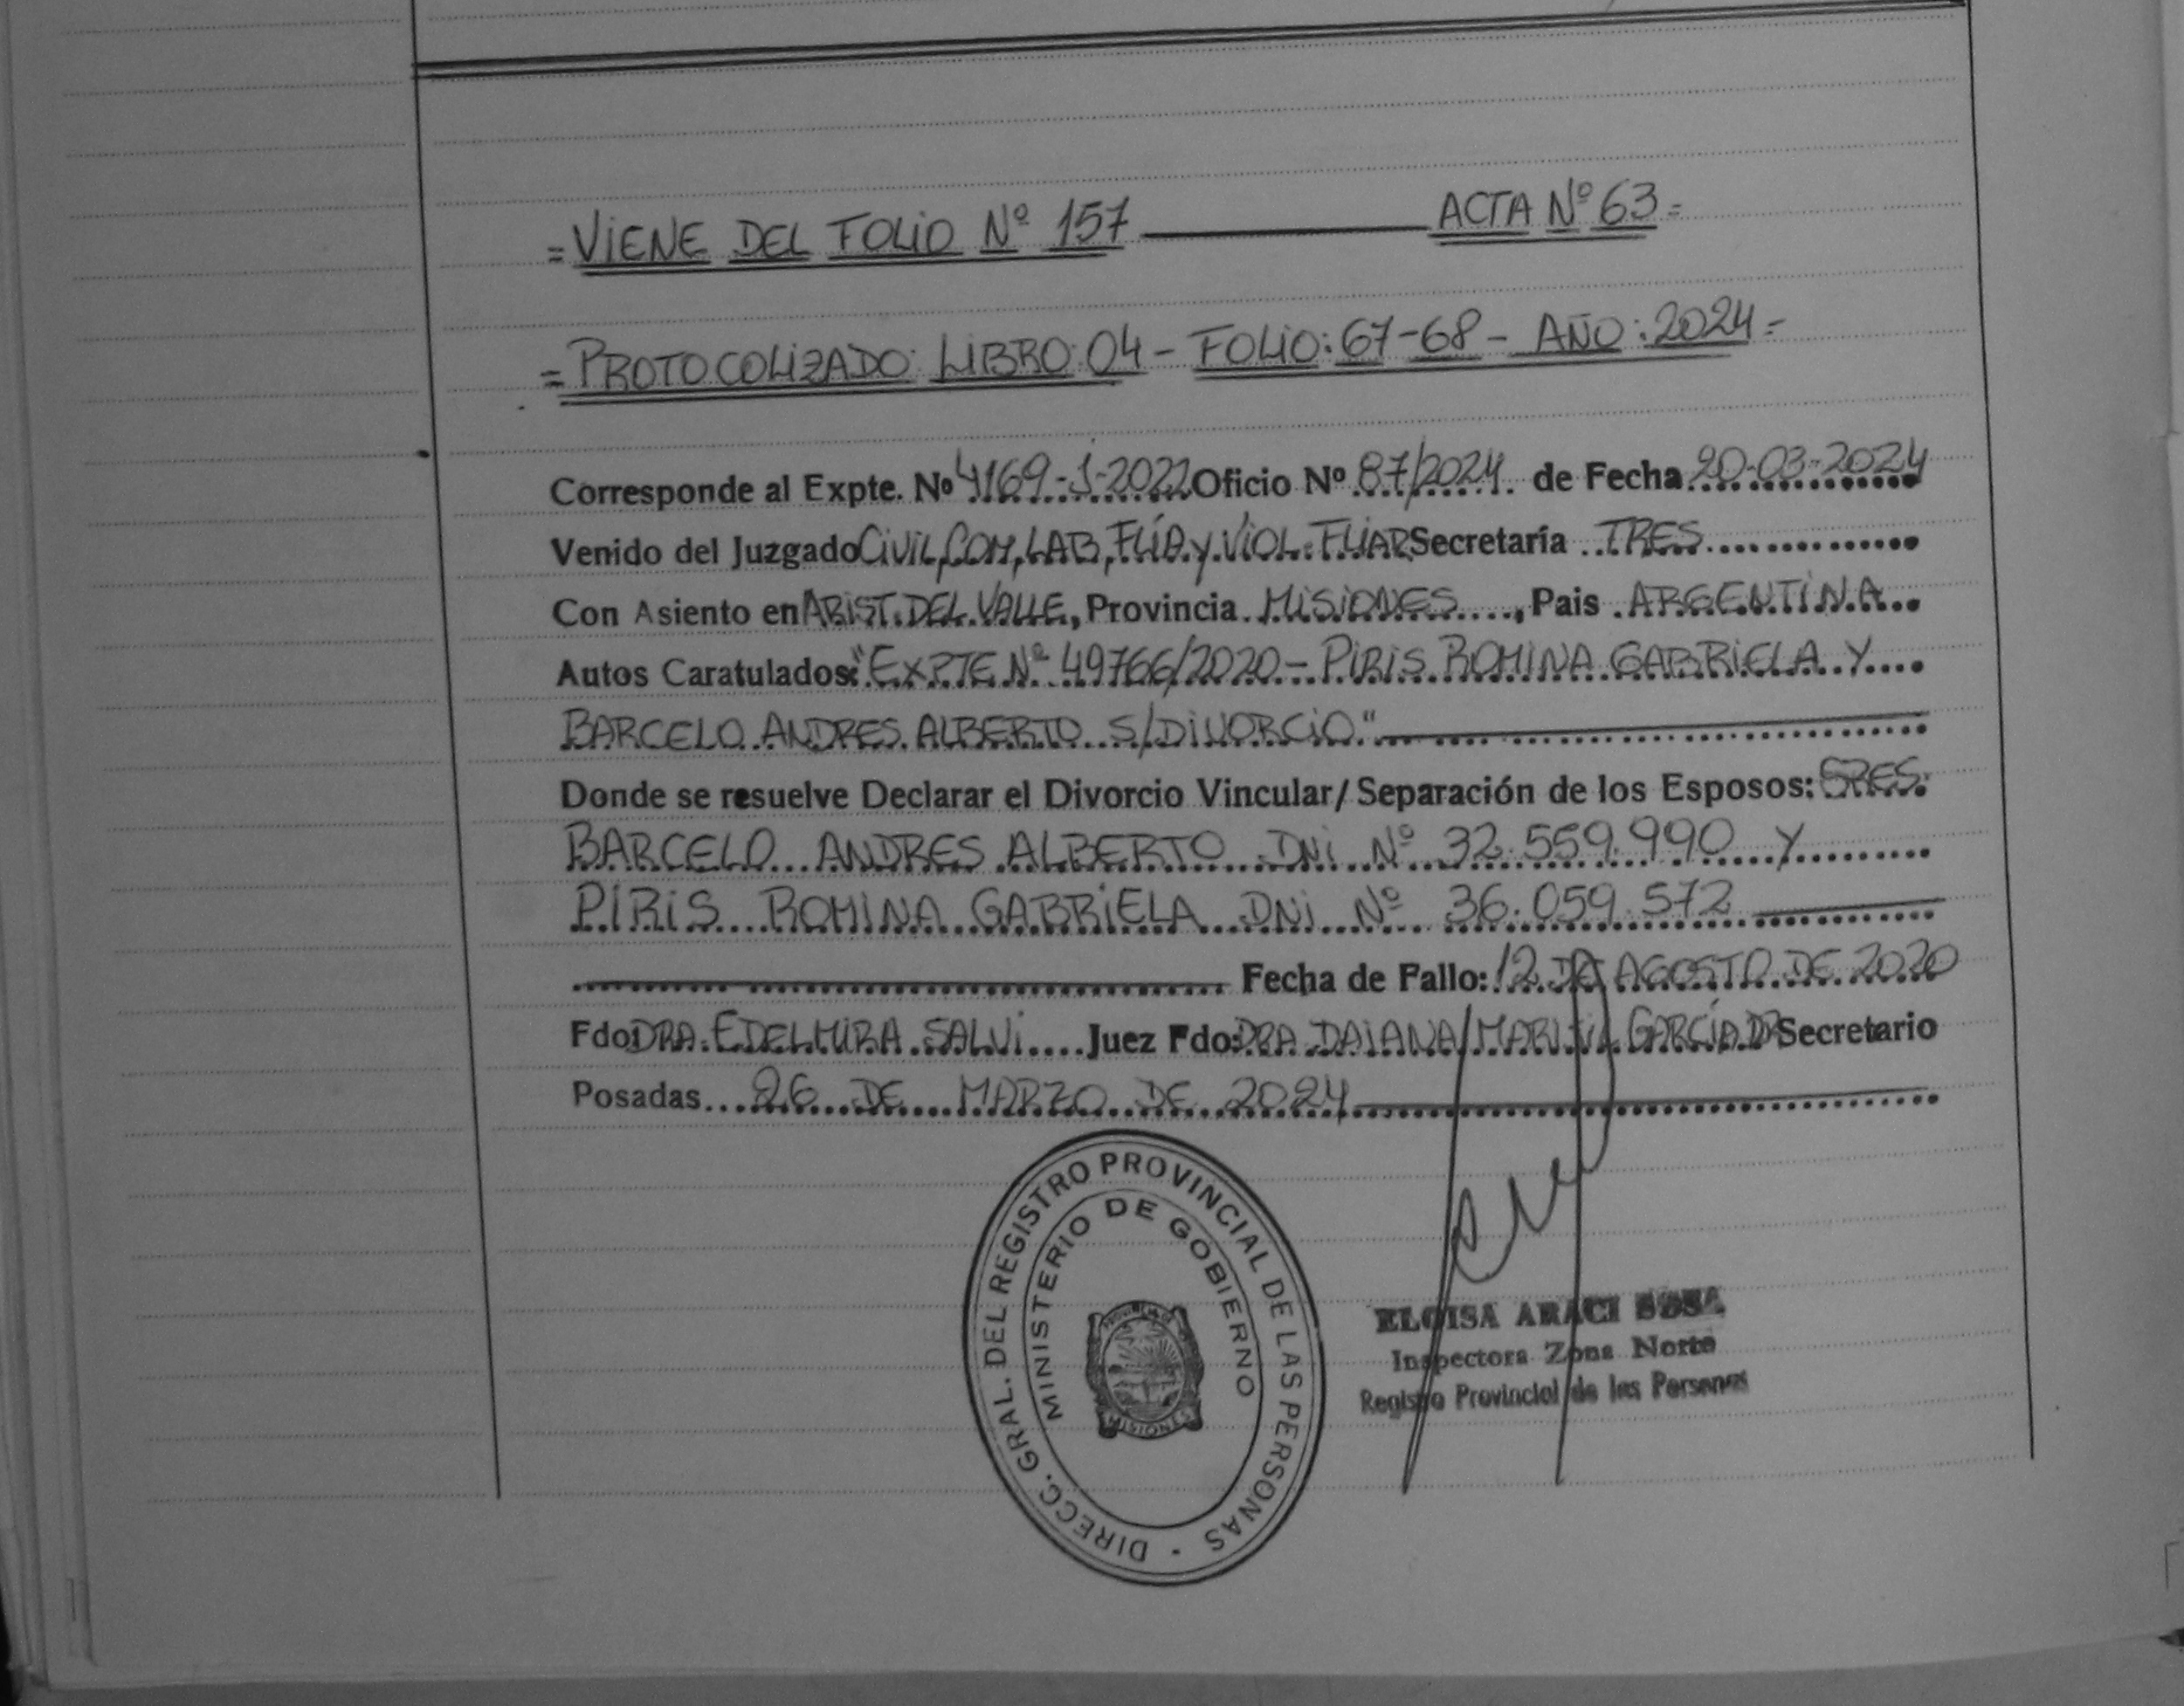 = VIENE DEL FOLIO Nº 157 ACTA Nº 63 =
= PROTOCOLIZADO: LIBRO: 04 - FOLIO: 67-68 - AÑO: 2024 =
Corresponde al Expte. Nº 4169-J-2022 Oficio Nº 87/2024 de Fecha 20-03-2024
Venido del Juzgado CIVIL, COM, LAB, FLÍA y VIOL. FLIAR Secretaría TRES
Con Asiento en ARIST. DEL VALLE, Provincia MISIONES, Pais ARGENTINA
Autos Caratulados: "EXPTE Nº 49766/2020 - PIRIS ROMINA GABRIELA Y
BARCELO ANDRES ALBERTO S/DIVORCIO"
Donde se resuelve Declarar el Divorcio Vincular/ Separación de los Esposos: SRES.
BARCELO ANDRES ALBERTO DNI Nº 32.559.990 Y
PIRIS ROMINA GABRIELA DNI Nº 36.059.572
Fecha de Fallo: 12 DE AGOSTO DE 2020
Fdo: DRA. EDELMIRA SALVI Juez Fdo: DRA DAIANA GARCÍA Secretario
Posadas 26 DE MARZO DE 2024
DIRECC. GRAL. DEL REGISTRO PROVINCIAL DE LAS PERSONAS
MINISTERIO DE GOBIERNO
MISIONES
ELOISA ARACI SOSA
Inspectora Zona Norte
Registro Provincial de las Personas